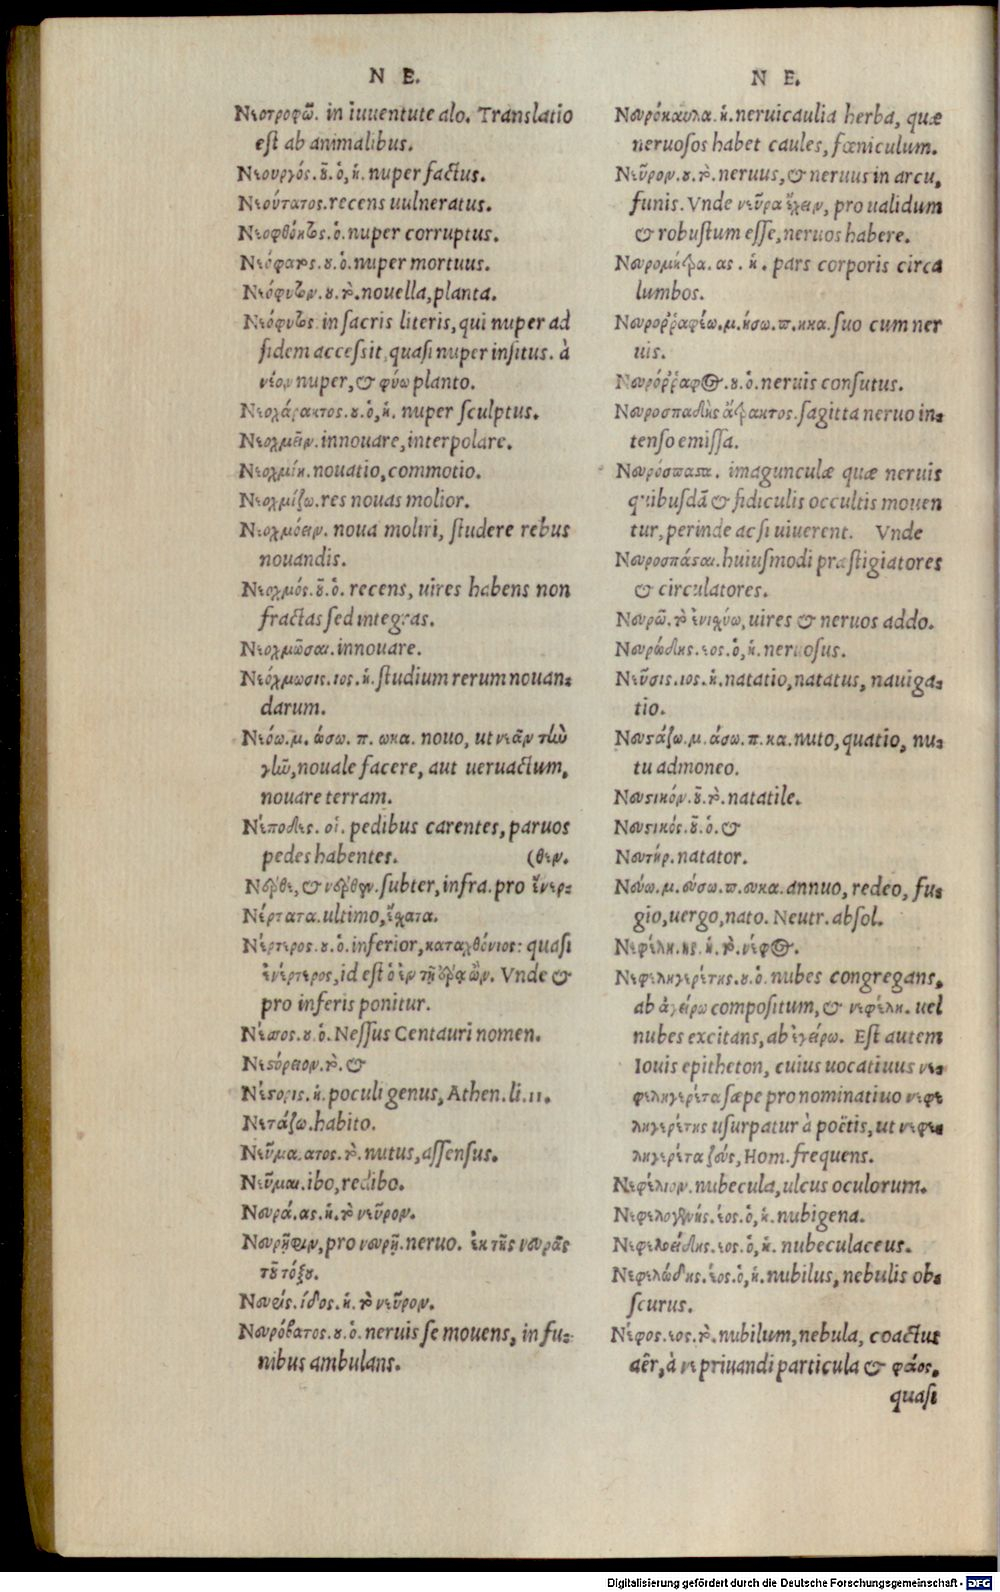 N E.
Νεοτροφῶ. in iuuentute alo. Translatio
est ab animalibus.
Νεουργός. οῦ. ὁ, ἡ. nuper factus.
Νεούτατος. recens uulneratus.
Νεοφθόρος. ὁ. nuper corruptus.
Νεόφατος. ου. ὁ. nuper mortuus.
Νεόφυτον. ου. τὸ. nouella, planta.
Νεόφυτος in sacris literis, qui nuper ad
fidem accessit, quasi nuper insitus. à
νέον nuper, & φύω planto.
Νεοχάρακτος. ου. ὁ, ἡ. nuper sculptus.
Νεοχμεῖν. innouare, interpolare.
Νεοχμίη. nouatio, commotio.
Νεοχμίζω. res nouas molior.
Νεοχμόειν. noua moliri, studere rebus
nouandis.
Νεοχμός. οῦ. ὁ. recens, uires habens non
fractas sed integras.
Νεοχμῶσαι. innouare.
Νεόχμωσις. ιος. ἡ. studium rerum nouan=
darum.
Νεόω. μ. ώσω. π. ωκα. nouo, ut νεᾶν τὴν
γῆν, nouale facere, aut ueruactum,
nouare terram.
Νέποδες. οἱ. pedibus carentes, paruos
pedes habentes. (θεν.
Νέρθε, & νέρθεν. subter, infra. pro ἔνερ=
Νέρτατα. ultimo, ἔσχατα.
Νέρτερος. ου. ὁ. inferior, καταχθόνιος: quasi
ἐνέρτερος, id est ὁ ἐν τῇ ἔρᾳ ὤν. Vnde &
pro inferis ponitur.
Νέσσος. ου. ὁ. Nessus Centauri nomen.
Νεστόρειον. τὸ. &
Νέστορις. ἡ. poculi genus, Athen. li. 11.
Νετάζω. habito.
Νεῦμα. ατος. τὸ. nutus, assensus.
Νεῦμαι. ibo, redibo.
Νευρά. ας. ἡ. τὸ νεῦρον.
Νευρῆφιν, pro νευρῇ. neruo. ἐκ τῆς νευρᾶς
τοῦ τόξου.
Νευρίς. ίδος. ἡ. τὸ νεῦρον.
Νευρόβατος. ου. ὁ. neruis se mouens, in fu=
nibus ambulans.
N E.
Νευρόκαυλα. ἡ. neruicaulia herba, quæ
neruosos habet caules, fœniculum.
Νεῦρον. ου. τὸ. neruus, & neruus in arcu,
funis. Vnde νεῦρα ἔχειν, pro ualidum
& robustum esse, neruos habere.
Νευρομήτρα. ας. ἡ. pars corporis circa
lumbos.
Νευροῤῥαφέω. μ. ήσω. π. ηκα. suo cum ner
uis.
Νευρόῤῥαφος. ου. ὁ. neruis consutus.
Νευροσπαδὴς ἄτρακτος. sagitta neruo in=
tenso emissa.
Νευρόσπαστα. imagunculæ quæ neruis
quibusdã & fidiculis occultis mouen
tur, perinde ac si uiuerent. Vnde
Νευροσπάσαι. huiusmodi præstigiatores
& circulatores.
Νευρῶ. τὸ ἐνισχύω, uires & neruos addo.
Νευρώδης. εος. ὁ, ἡ. neruosus.
Νεῦσις. ιος. ἡ. natatio, natatus, nauiga=
tio.
Νευστάζω. μ. άσω. π. κα. nuto, quatio, nu=
tu admoneo.
Νευστικόν. οῦ. τὸ. natatile.
Νευστικός. οῦ. ὁ. &
Νευτήρ. natator.
Νεύω. μ. εύσω. π. ευκα. annuo, redeo, fu=
gio, uergo, nato. Neutr. absol.
Νεφέλη. ης. ἡ. τὸ. νέφος.
Νεφεληγερέτης. ου. ὁ. nubes congregans,
ab ἀγείρω compositum, & νεφέλη. uel
nubes excitans, ab ἐγείρω. Est autem
Iouis epitheton, cuius uocatiuus νε=
φεληγερέτα sæpe pro nominatiuo νεφε
ληγερέτης usurpatur à poëtis, ut νεφε=
ληγερέτα ζεύς, Hom. frequens.
Νεφέλιον. nubecula, ulcus oculorum.
Νεφελογενής. έος. ὁ, ἡ. nubigena.
Νεφελοειδής. εος. ὁ, ἡ. nubeculaceus.
Νεφελώδης. έος. ὁ, ἡ. nubilus, nebulis ob=
scurus.
Νέφος. εος. τὸ. nubilum, nebula, coactus
aêr, à νε priuandi particula & φάος.
quasi
Digitalisierung gefördert durch die Deutsche Forschungsgemeinschaft - DFG